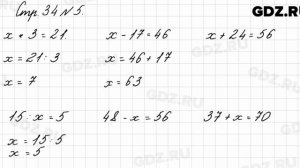 GDZ.RU
Стр. 34 № 5.
x · 3 = 21. x - 17 = 46 x + 24 = 56
x = 21 : 3 x = 46 + 17
x = 7 x = 63
15 : x = 5 48 - x = 56 37 + x = 70
x = 15 : 5
x = 5
GDZ.RU